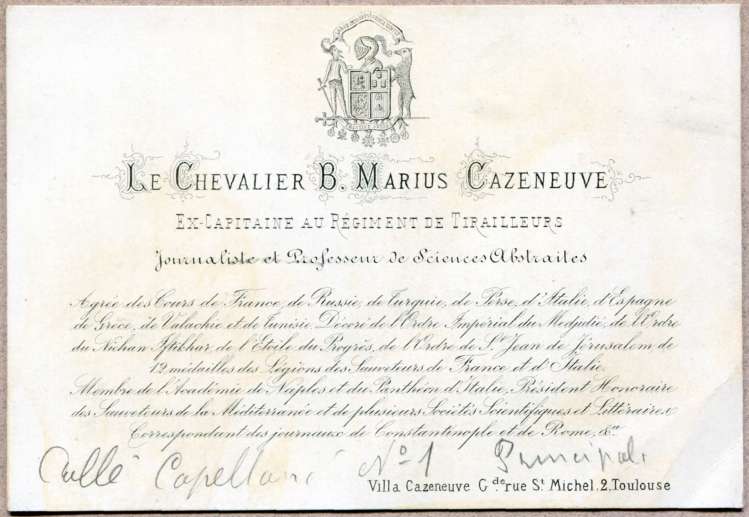 LE CHEVALIER B. MARIUS CAZENEUVE
EX-CAPITAINE AU RÉGIMENT DE TIRAILLEURS
Journaliste et Professeur de Sciences Abstraites
Agréé des Cours de France, de Russie, de Turquie, de Perse, d'Italie, d'Espagne
de Grèce, de Valachie et de Tunisie, Décoré de l'Ordre Impérial du Medjidié, de l'Ordre
du Nichan-Iftikhar, de l'Etoile du Progrès, de l'Ordre de St Jean de Jérusalem de
12 médailles des Légions des Sauveteurs de France et d'Italie.
Membre de l'Académie de Naples et du Panthéon d'Italie, Président Honoraire
des Sauveteurs de la Méditerranée et de plusieurs Sociétés Scientifiques et Littéraires
Correspondant des journaux de Constantinople et de Rome, &a
Calle Capellans Nº 1 Principal
Villa Cazeneuve Gde rue St Michel. 2, Toulouse